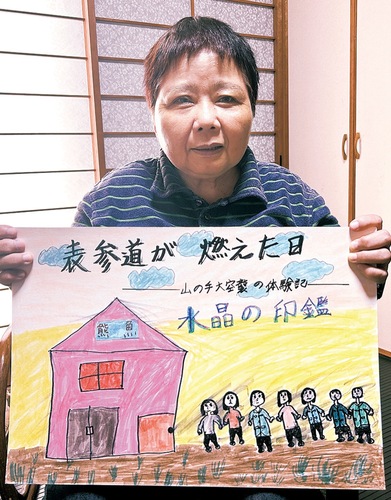 表参道が燃えた日
山の手大空襲の体験記
水晶の印鑑
熊鳳